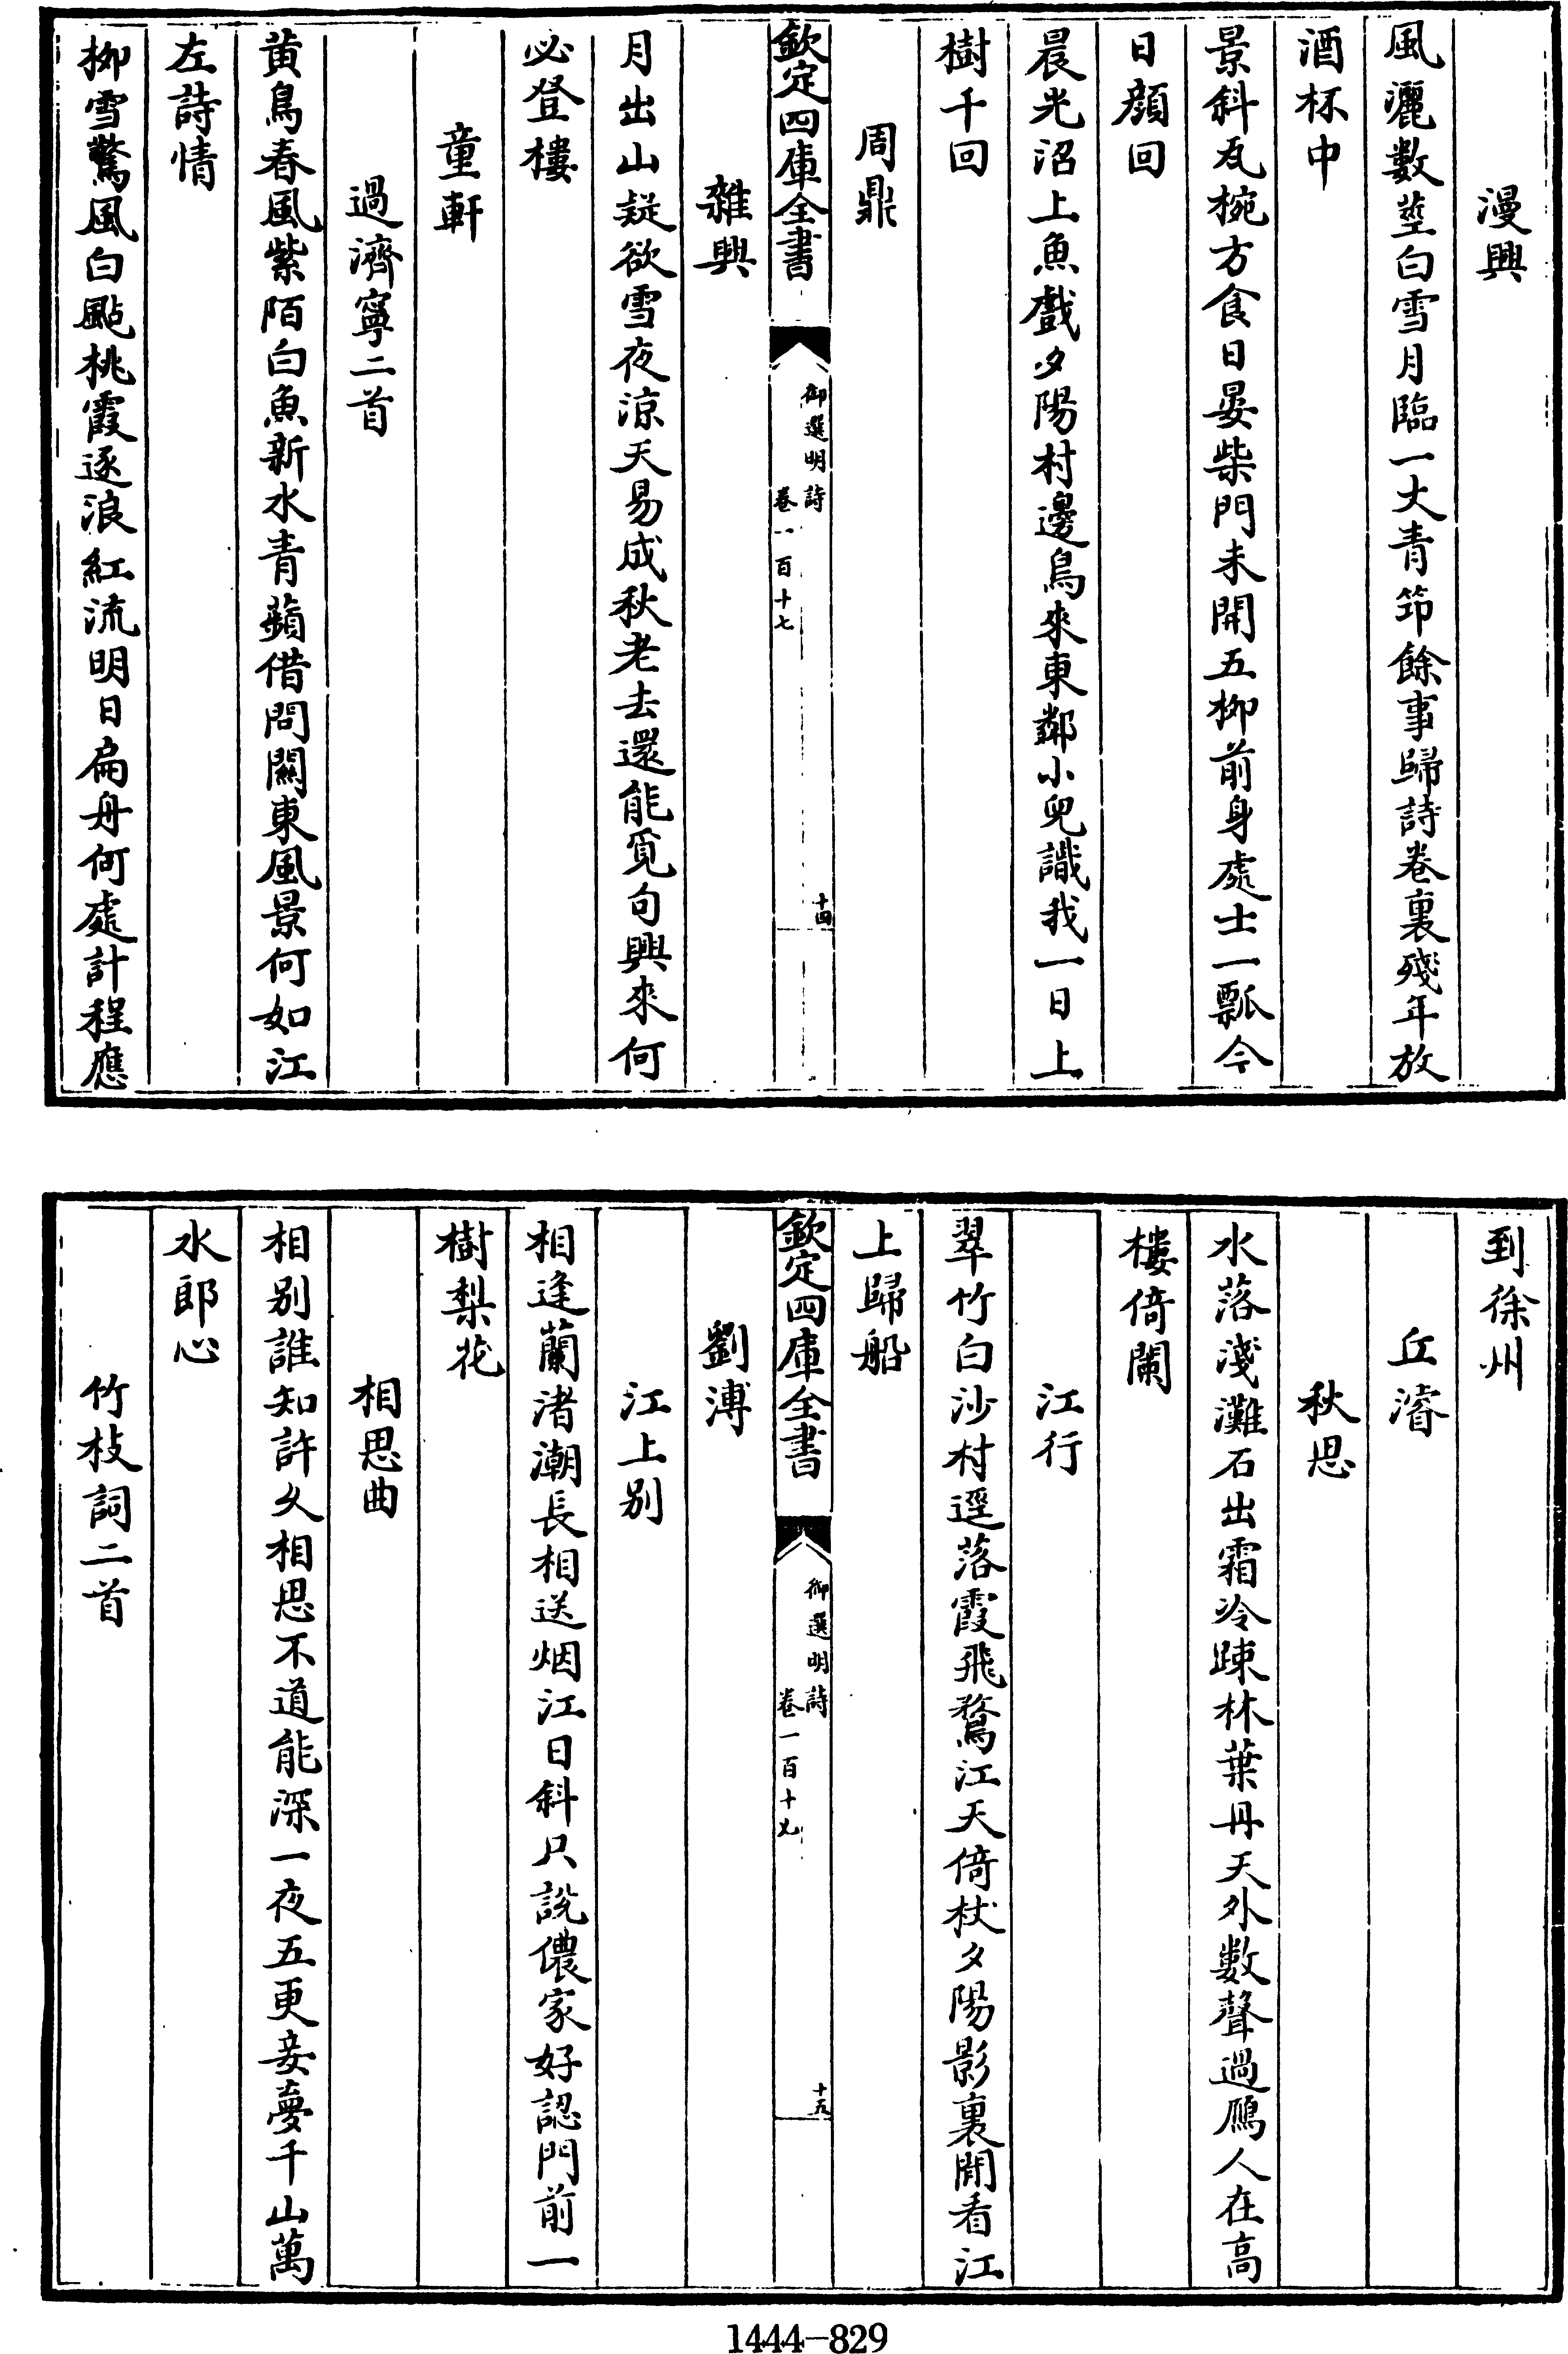 漫興
風灑數莖白雪月臨一丈青笻餘事歸詩卷裏殘年放
酒杯中
景斜瓦椀方食日晏柴門未開五柳前身處士一瓢今
日顔回
晨光沼上魚戲夕陽村邊鳥來東鄰小兒識我一日上
樹千回
周鼎
欽定四庫全書
御選明詩
卷一百十七
十四
雜興
月出山疑欲雪夜涼天易成秋老去還能覓句興來何
必登樓
童軒
過濟寧二首
黄鳥春風紫陌白魚新水青蘋借問闗東風景何如江
左詩情
柳雪驚風白颭桃霞逐浪紅流明日扁舟何處計程應
到徐州
丘濬
秋思
水落淺灘石出霜冷踈林葉丹天外數聲過鴈人在高
樓倚闌
江行
翠竹白沙村逕落霞飛鶩江天倚杖夕陽影裏閒看江
上歸船
欽定四庫全書
御選明詩
卷一百十九
十五
劉溥
江上别
相逢蘭渚潮長相送烟江日斜只說儂家好認門前一
樹梨花
相思曲
相别誰知許久相思不道能深一夜五更妾夢千山萬
水郎心
竹枝詞二首
1444-829